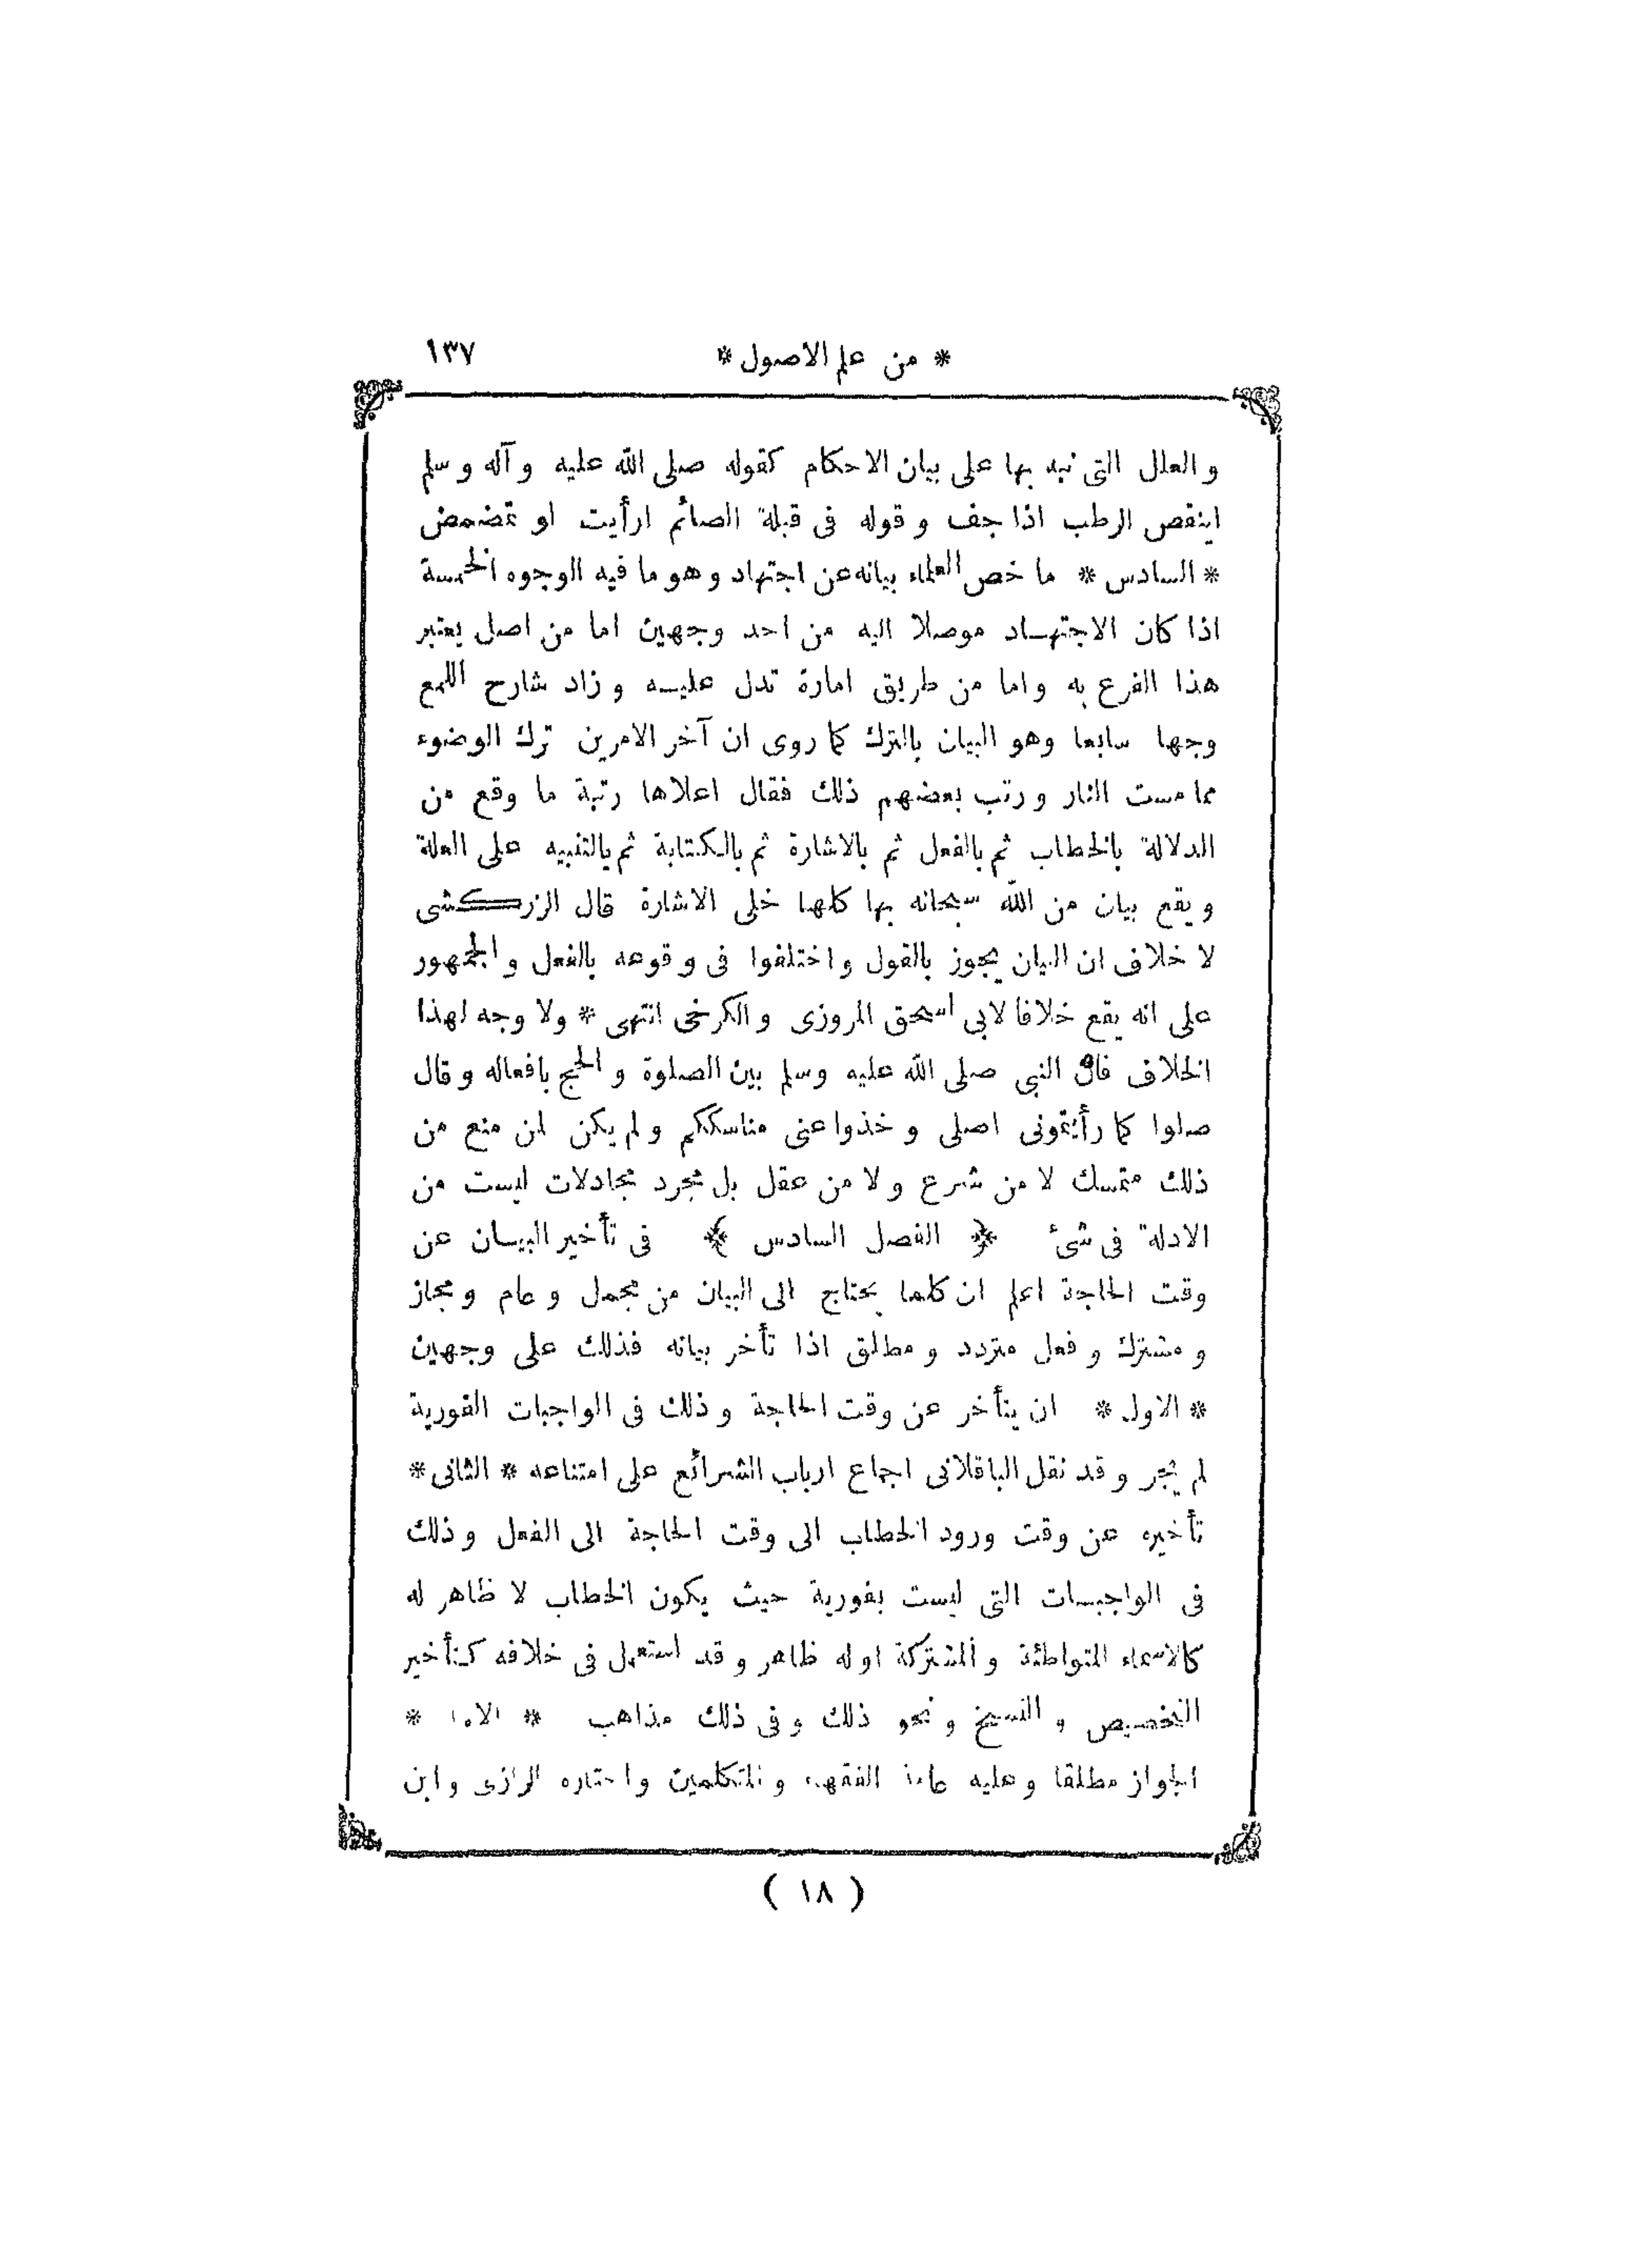 * من علم الاصول * ١٣٧
و العلل التى نبه بها على بيان الاحكام كقوله صلى الله عليه و آله و سلم
اينقص الرطب اذا جف و قوله فى قبلة الصائم ارأيت او تمضمض
* السادس * ما خص العلماء بيانه عن اجتهاد و هو ما فيه الوجوه الخمسة
اذا كان الاجتهاد موصلا اليه من احد وجهين اما من اصل يعتبر
هذا الفرع به واما من طريق امارة تدل عليه و زاد شارح اللمع
وجها سابعا وهو البيان بالترك كما روى ان آخر الامرين ترك الوضوء
مما مست النار و رتب بعضهم ذلك فقال اعلاها رتبة ما وقع من
الدلالة بالخطاب ثم بالفعل ثم بالاشارة ثم بالكتابة ثم بالتنبيه على العلة
و يقع بيان من الله سبحانه بها كلها خلى الاشارة قال الزركشى
لا خلاف ان البيان يجوز بالقول و اختلفوا فى و قوعه بالفعل و الجمهور
على انه يقع خلافا لابى اسحق المروزى و الكرخى انتهى * ولا وجه لهذا
الخلاف فان النبى صلى الله عليه وسلم بين الصلوة و الحج بافعاله و قال
صلوا كما رأيتمونى اصلى و خذوا عنى مناسككم و لم يكن لمن منع من
ذلك متمسك لا من شرع و لا من عقل بل مجرد مجادلات ليست من
الادلة فى شئ ﴿ الفصل السادس ﴾ فى تأخير البيان عن
وقت الحاجة اعلم ان كلما يحتاج الى البيان من مجمل و عام و مجاز
و مشترك و فعل متردد و مطلق اذا تأخر بيانه فذلك على وجهين
* الاول * ان يتأخر عن وقت الحاجة و ذلك فى الواجبات الفورية
لم يجر و قد نقل الباقلانى اجماع ارباب الشرائع على امتناعه * الثانى *
تأخيره عن وقت ورود الخطاب الى وقت الحاجة الى الفعل و ذلك
فى الواجبات التى ليست بفورية حيث يكون الخطاب لا ظاهر له
كالاسماء المتواطئة و المشتركة او له ظاهر و قد استعمل فى خلافه كتأخير
التخصيص و النسخ و نحو ذلك و فى ذلك مذاهب * *
الجواز مطلقا و عليه عامة الفقهاء و المتكلمين و اختاره الرازى و ابن
( ١٨ )